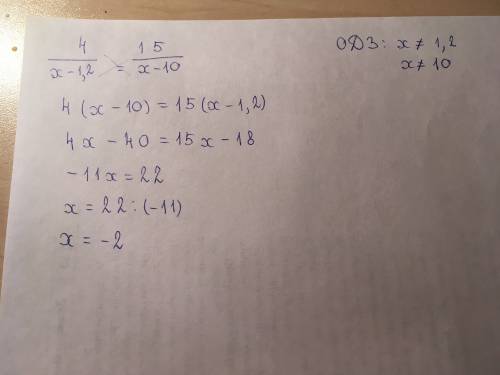 4/(x-1,2) = 15/(x-10)
ОДЗ: x ≠ 1,2
x ≠ 10
4(x-10) = 15(x-1,2)
4x - 40 = 15x - 18
-11x = 22
x = 22 : (-11)
x = -2